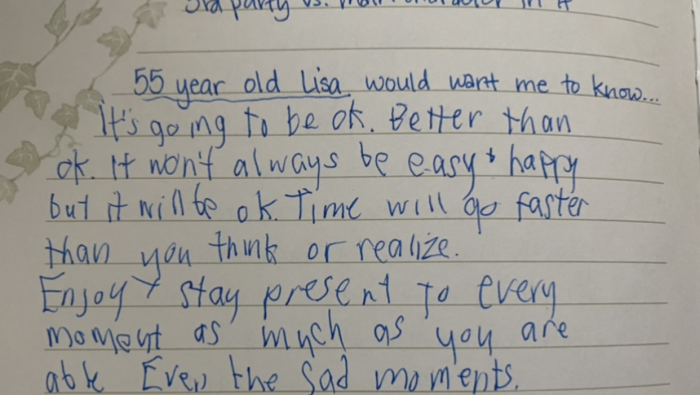 3rd party vs. main character in it
55 year old Lisa would want me to know...
It's going to be ok. Better than
ok. It won't always be easy + happy
but it will be ok. Time will go faster
than you think or realize.
Enjoy + stay present to every
moment as much as you are
able Even the sad moments.